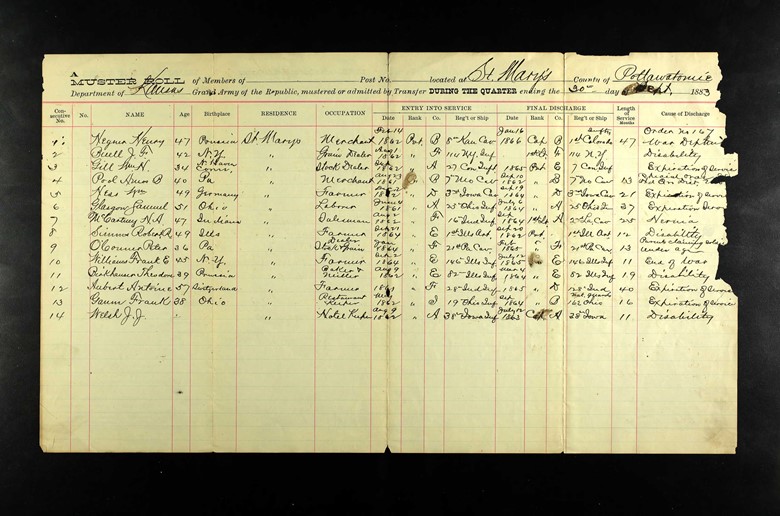 A
MUSTER ROLL of Members of Post No. located at St. Mary's County of Pottawatomie
Department of Kansas Grand Army of the Republic, mustered or admitted by Transfer DURING THE QUARTER ending the 30" day Sept, 1883
Consecutive No. No. NAME Age Birthplace RESIDENCE OCCUPATION ENTRY INTO SERVICE Date Rank Co. Reg't or Ship FINAL DISCHARGE Date Rank Co. Reg't or Ship Length of Service Months Cause of Discharge
1 Henry 47 Prussia St Marys Merchant Feb 14 1862 Pvt B 8" Kan Cav Jan 16 1866 Cap B 1st Colorado 47 Order No 167 War Dept
2 Buell J. F. 42 N.Y. " Grain Dealer 1862 " F 114 N.Y. Inf F 114 N.Y. Disability
3 Gill Wm H. 34 " Stock Dealer 1862 " A 27 Con Inf 1865 Pvt E 27 Con. Inf Expiration of Service
4 Pool Amos B 40 Pa " Merchant 1862 " B 7" Mo Cav Sep 10 1862 " B 7" Mo Cav 13
5 Hess Wm 49 Germany " Farmer 1862 " D 3rd Iowa Cav Sep 19 1864 " D 3rd Iowa Cav 21 Expiration of Service
6 Glasgow Samuel 51 Ohio " Laborer June 4 1861 " A 25" Ohio Inf July 16 1864 " A 25 Ohio Inf 37 Expiration Service
7 McCartney N. A. 47 Indiana " Salesman Aug 2 1862 " F 16 Ind Inf Sep 1864 2nd Cav 25 Hernia
8 Simms Robert R 49 Ills " Farmer Sep 21 1864 " E 1st Ills Art Sep 20 1865 Pvt 1st Ill Art 12 Disability
9 O'Connor Peter 36 Pa " Stock Grain Dealer Jan 1864 " F 21st Pa Cav Feb 1865 " F 21st Pa Cav 13 under age
10 Williams Frank E 45 N.Y. " Farmer Sep 2 1864 " E 146 Ill Inf July 1865 " E 146 Ill Inf 11 End of War
11 Theodore 39 Prussia " Baker & Aug 9 1862 " E 82" Ills Inf Mar 4 1864 " E 82 Ills Inf 19 Disability
12 Aubert Antoine 57 Switzerland " Farmer 1861 " F 28" Ind Inf 1865 " D 128" Ind 40 Expiration of Service
13 Gaum Frank 38 Ohio " Restaurant Keeper May 1862 " I 19 Ohio Inf Sep 1864 " B 162 Ohio 16 Expiration of Service
14 Welsh J. J. " Hotel Keeper Aug 9 1862 " A 38" Iowa Inf July 1863 A 38" Iowa 11 Disability